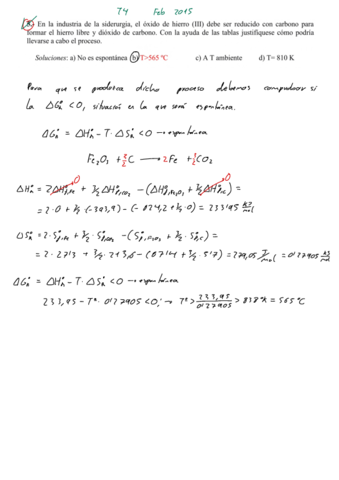 T4 Feb 2015
8. En la industria de la siderurgia, el óxido de hierro (III) debe ser reducido con carbono para
formar el hierro libre y dióxido de carbono. Con la ayuda de las tablas justifíquese cómo podría
llevarse a cabo el proceso.
Soluciones: a) No es espontánea b) T>565 ºC c) A T ambiente d) T= 810 K
Para que se produzca dicho proceso debemos comprobar si
la ΔGºR <0, situación en la que será espontánea.
ΔGºR = ΔHºR − T·ΔSºR <0 → espontánea
Fe2O3 + 3/2 C → 2Fe + 3/2 CO2
ΔHºR = 2ΔHºf,Fe + 3/2 ΔHºf,CO2 − (ΔHºf,Fe2O3 + 3/2 ΔHºf,C) =
= 2·0 + 3/2·(−393,9) − (−824,2 + 3/2·0) = 233,95 KJ/mol
ΔSºR = 2·Sºf,Fe + 3/2·Sºf,CO2 − (Sºf,Fe2O3 + 3/2·Sºf,C) =
= 2·27,3 + 3/2·213,6 − (87,4 + 3/2·5,7) = 279,05 J/mol = 0,27905 KJ/mol
ΔGºR = ΔHºR − T·ΔSºR <0 → espontánea
233,95 − Tª·0,27905 <0; → Tª > 233,95/0,27905 > 838 ºK = 565ºC